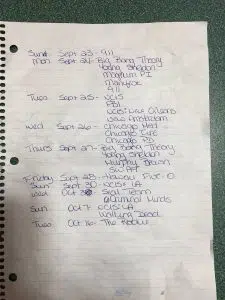 Sun Sept 23 - 911
Mon Sept 24 - Big Bang Theory
Young Sheldon
Magnum PI
Manifest
911
Tues Sept 25 - NCIS
FBI
NCIS New Orleans
New Amsterdam
Wed Sept 26 - Chicago Med
Chicago Fire
Chicago PD
Thurs Sept 27 - Big Bang Theory
Young Sheldon
Murphy Brown
SWAT
Friday Sept 28 - Hawaii Five-O
Sun Sept 30 - NCIS LA
Wed Oct 3 - Seal Team
Criminal Minds
Sun Oct 7 - NCIS LA
Walking Dead
Tues Oct 16 - The Rookie